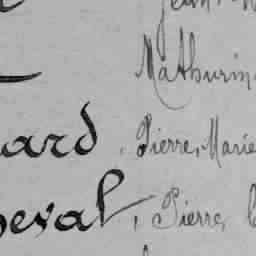 Mathurin
ard, Pierre, Marie
heval, Pierre,